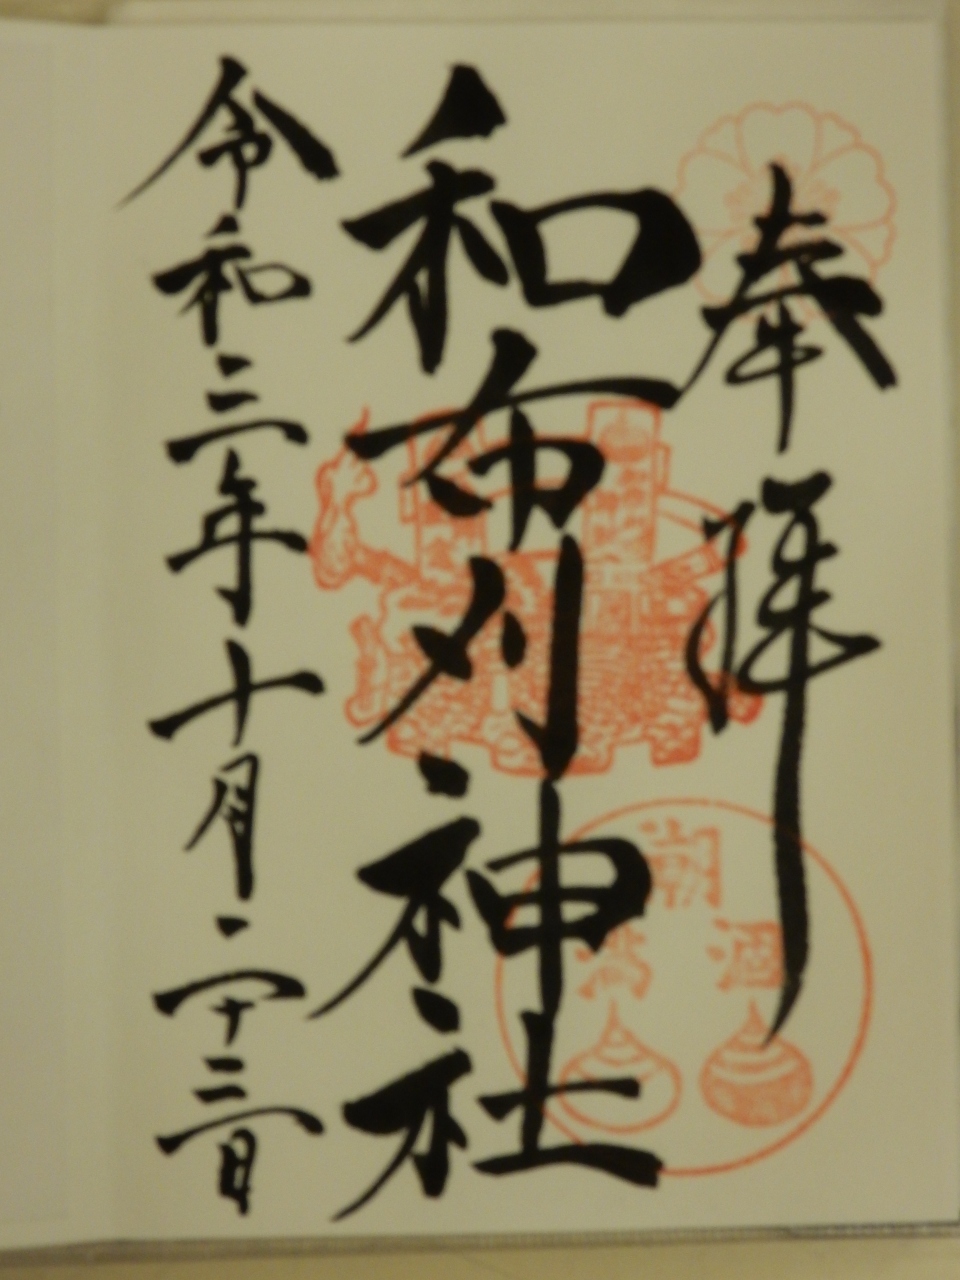 奉拝
和布刈神社
令和三年十月二十三日
潮
満
涸